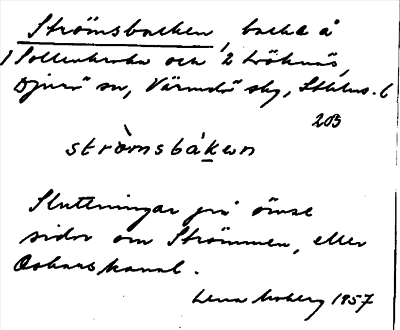 Strömsbacken, backe å
1 Sollenkroka och 2 Löknäs,
Djurö sn, Värmdö skg, Sthlms. l
203
strò̀msbáken
Sluttningar på ömse
sidor om Strömmen, eller
Oskarskanal.
Lena Moberg 1957